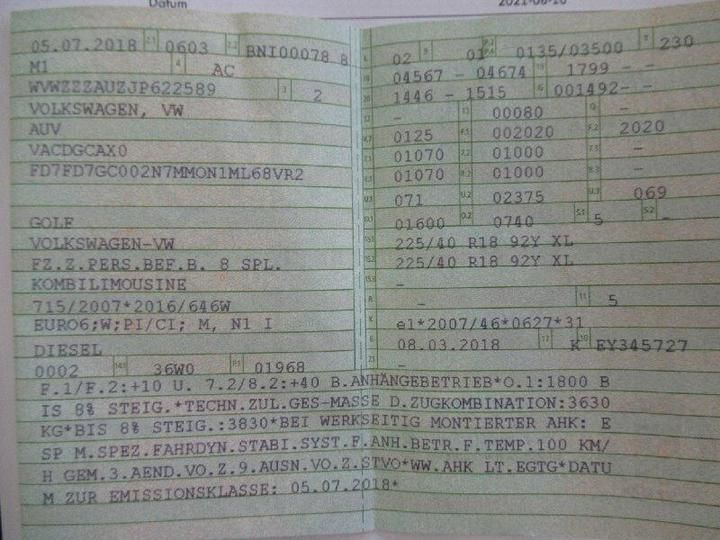 Datum
2021-06-10
05.07.2018 2.1 0603 2.2 BNI00078 8
M1 4 AC
WVWZZZAUZJP622589 3 2
VOLKSWAGEN, VW
AUV
VACDGCAX0
FD7FD7GC002N7MMON1ML68VR2
GOLF
VOLKSWAGEN-VW
FZ.Z.PERS.BEF.B. 8 SPL.
KOMBILIMOUSINE
715/2007*2016/646W
EURO6;W;PI/CI; M, N1 I
DIESEL
0002 14.1 36W0 P.1 01968
02 9 01 P.2 P.4 0135/03500 T 230
04567 - 04674 19 1799 - -
1446 - 1515 G 001492- -
- 13 00080 Q -
0125 F.1 002020 F.2 2020
01070 7.2 01000 7.3 -
01070 8.2 01000 8.3 -
071 U.2 02375 U.3 069
01600 O.2 0740 S.1 5 S.2 -
15.1 225/40 R18 92Y XL
15.2 225/40 R18 92Y XL
15.3 -
R - 11 5
K e1*2007/46*0627*31
6 08.03.2018 17 K 16 EY345727
21 -
F.1/F.2:+10 U. 7.2/8.2:+40 B.ANHÄNGEBETRIEB*O.1:1800 B
IS 8% STEIG.*TECHN.ZUL.GES-MASSE D.ZUGKOMBINATION:3630
KG*BIS 8% STEIG.:3830*BEI WERKSEITIG MONTIERTER AHK: E
SP M.SPEZ.FAHRDYN.STABI.SYST.F.ANH.BETR.F.TEMP.100 KM/
H GEM.3.AEND.VO.Z.9.AUSN.VO.Z.STVO*WW.AHK LT.EGTG*DATU
M ZUR EMISSIONSKLASSE: 05.07.2018*